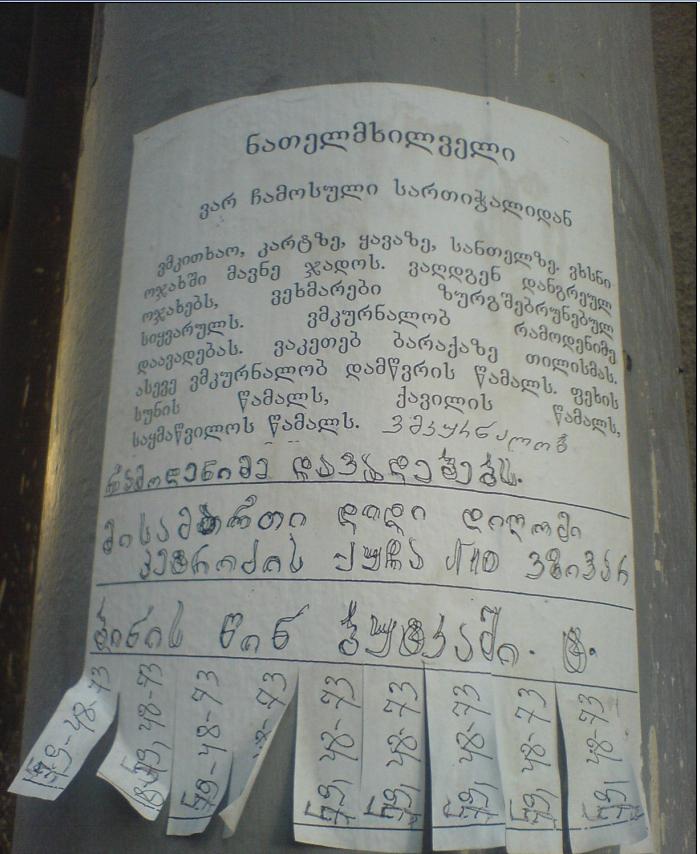 ნათელმხილველი
ვარ ჩამოსული სართიჭალიდან
ვმკითხაო, კარტზე, ყავაზე, სანთელზე. ვხსნი
ოჯახში მავნე ჯადოს. ვაღდგენ დანგრეულ
ოჯახებს, ვეხმარები ზურგშებრუნებულ
სიყვარულს. ვმკურნალობ რამოდენიმე
დაავადებას. ვაკეთებ ბარაქაზე თილისმას.
ასევე ვმკურნალობ დამწვრის წამალს. ფეხის
სუნის წამალს, ქავილის წამალს,
საყმაწვილოს წამალს. ვმკურნალობ
რამოდენიმე დავადებებს.
მისამართი დიდი დიღომი
პეტრიწის ქუჩა ვზივარ
ბინის წინ ბუტკაში. ტ.
59-48-73
59, 48-73
59-48-73
48-73
59, 48-73
59, 48-73
59, 48-73
59, 48-73
59, 48-73